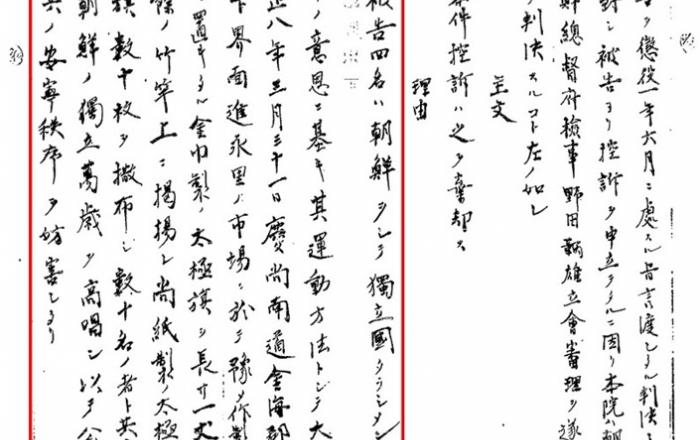 告ヲ懲役一年六月ニ處スル旨言渡シタル判決
對シ被告ヨリ控訴ヲ申立タルニ因リ本院ハ朝
鮮總督府檢事野田鞆雄立會審理ヲ遂
判決スルコト左ノ如シ
主文
本件控訴ハ之ヲ棄却ス
理由
被告四名ハ朝鮮ヲシテ獨立國タラシメン
ノ意思ニ基キ其運動方法トシテ大
正八年三月三十一日慶尚南道金海郡
下界面進永里ノ市場ニ於テ豫メ作製
置キタル金巾製ノ太極旗ヲ長サ一丈
餘ノ竹竿上ニ揭揚シ尚紙製ノ太極
旗數十枚ヲ撒布シ數十名ノ者ト共
朝鮮ノ獨立萬歲ヲ高唱シ以テ公
共ノ安寧秩序ヲ妨害シタリ